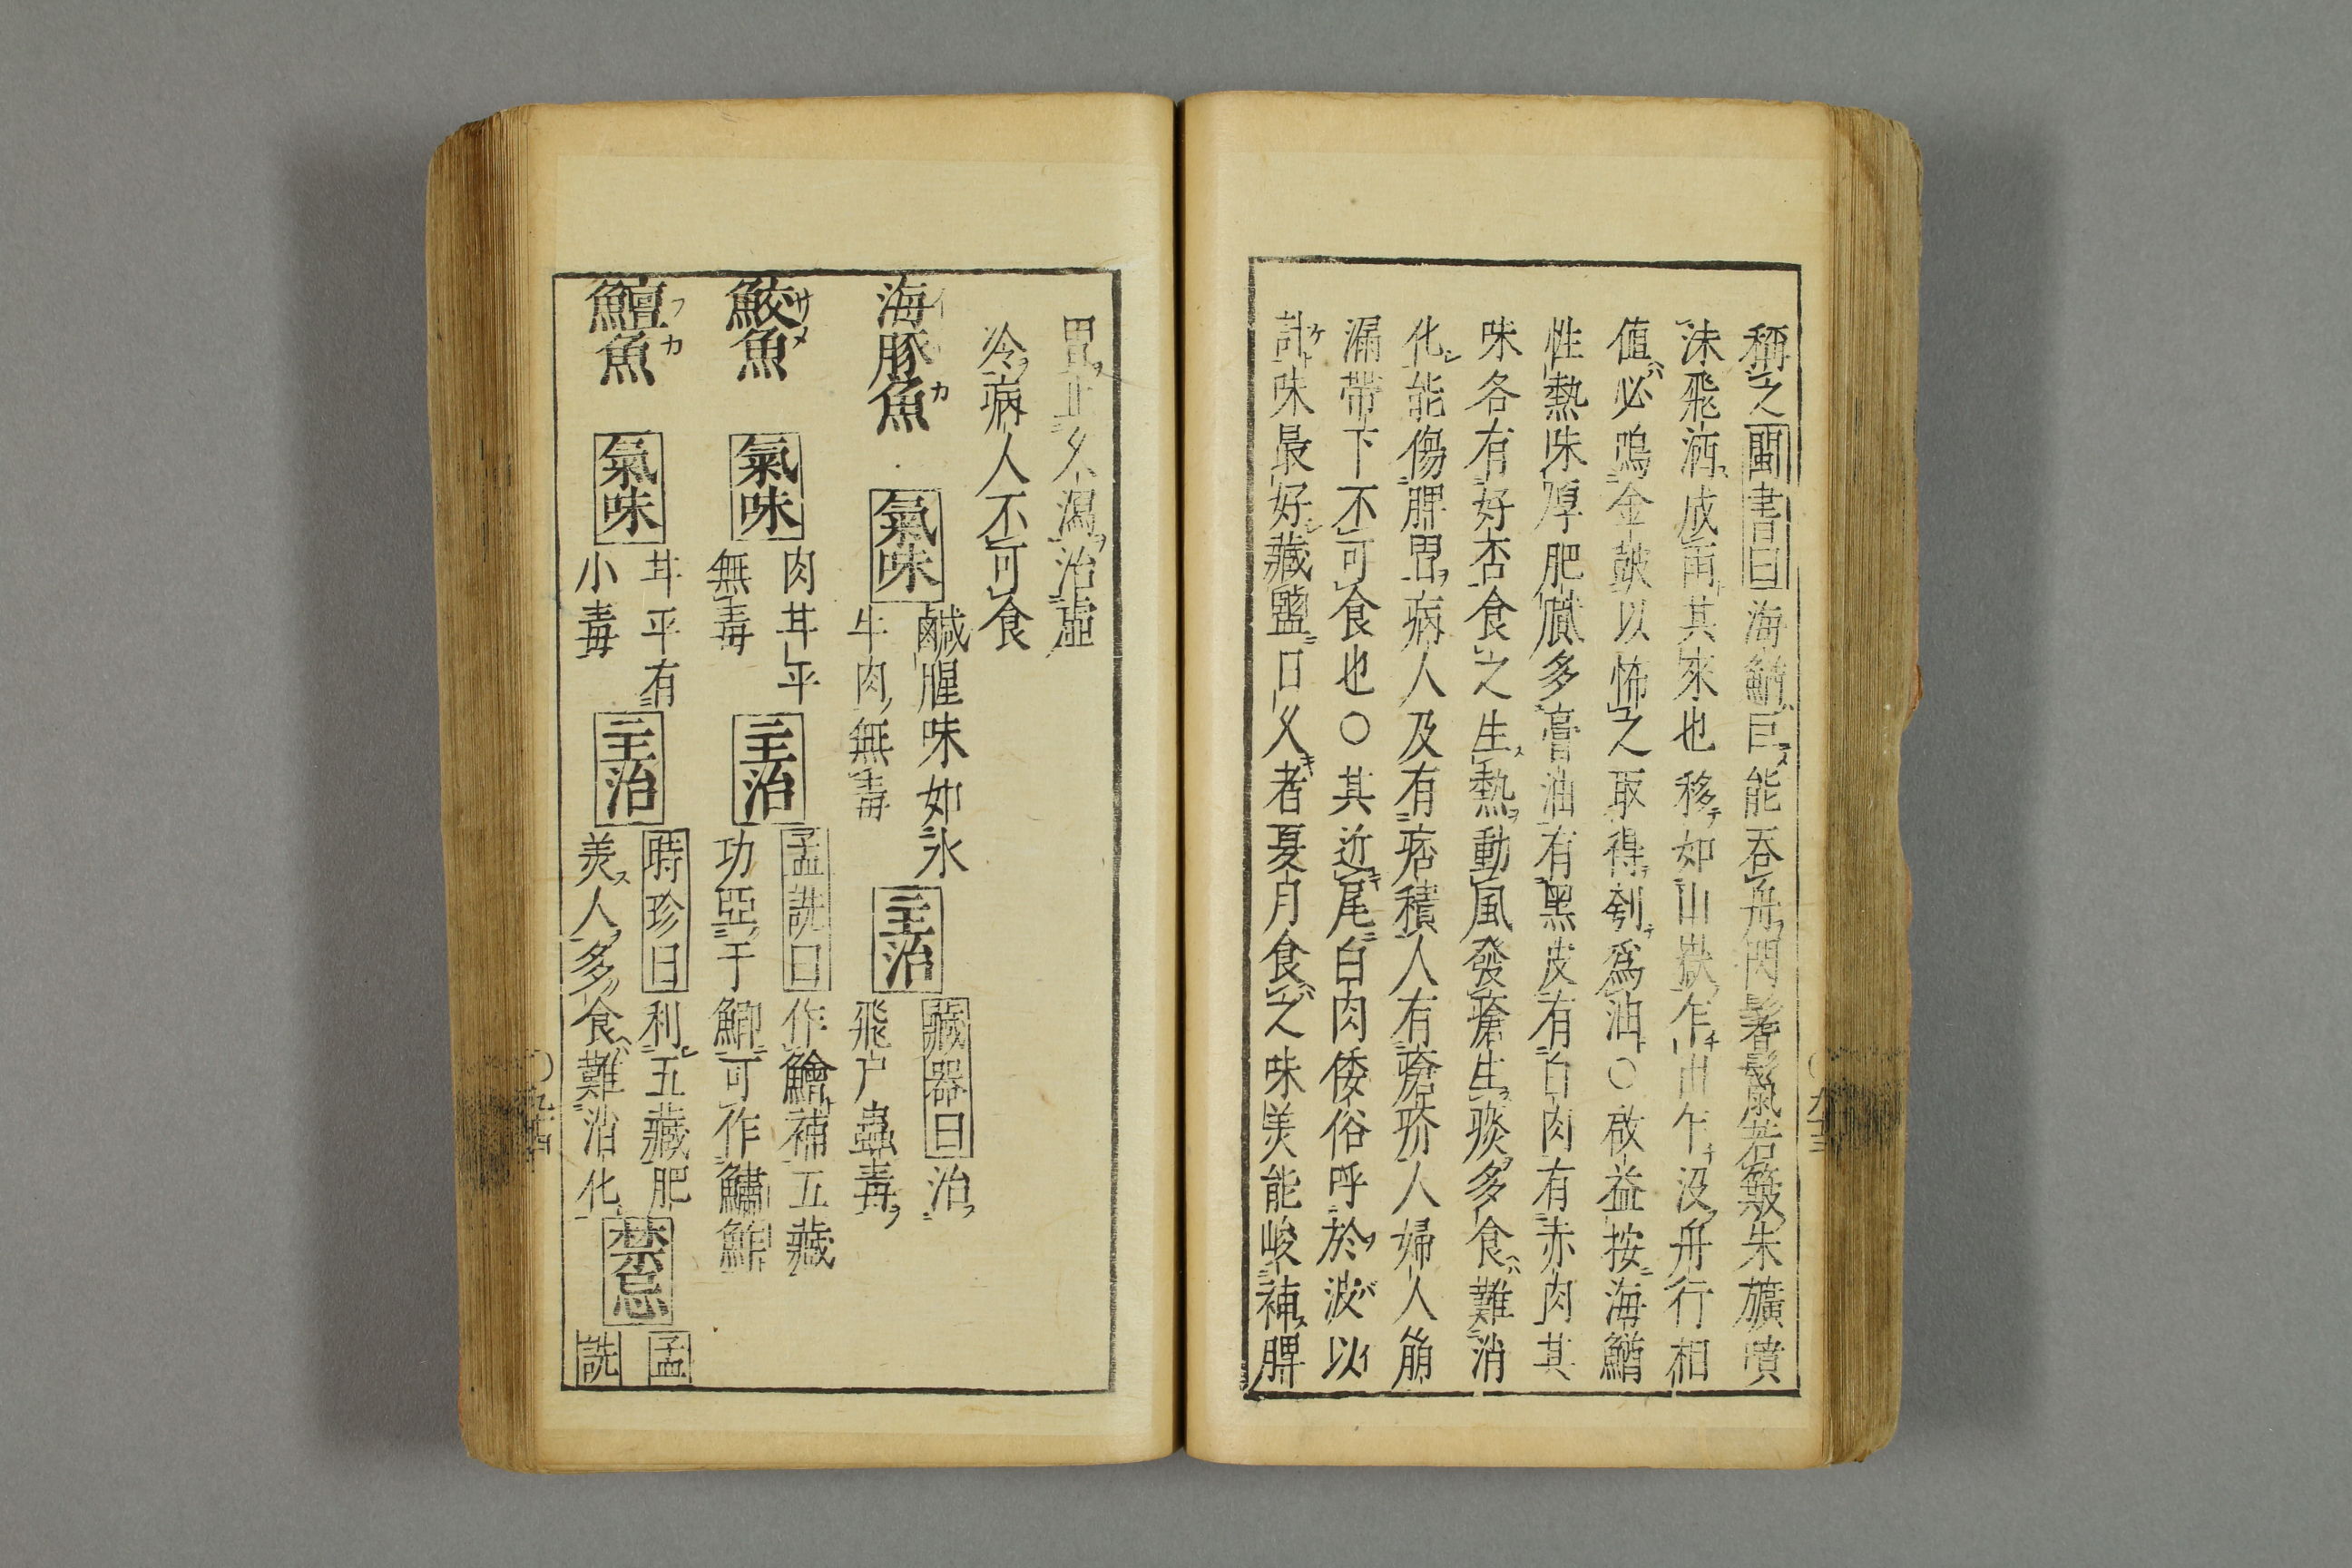 稱之閩書曰海鰌巨能吞舟閃鬐鬣鼠若簸朱旟噴
沬飛洒成雨其來也移如山嶽乍出乍沒舟行相
值必鳴金鼓以怖之取得刳爲油○啟益按海鰌
性熱味厚肥膩多膏油有黑皮有白肉有赤肉其
味各有好否食之生熱動風發瘡生痰多食難消
化能傷脾胃病人及有痞積人有瘡疥人婦人崩
漏帶下不可食也○其近尾白肉倭俗呼於波以
計味最好藏鹽日乂者夏月食之味美能峻補脾
胃止久瀉治虛
冷病人不可食
海豚魚 イ カ
氣味 鹹腥味如水
牛肉無毒
主治 藏器曰治
飛尸蟲毒
鮫魚 サメ
氣味 肉甘平
無毒
主治 孟詵曰作鱠補五藏
功亞于鯽可作鱐鮓
鱣魚 フカ
氣味 甘平有
小毒
主治 時珍曰利五藏肥
美人多食難治化
禁忌 孟
詵